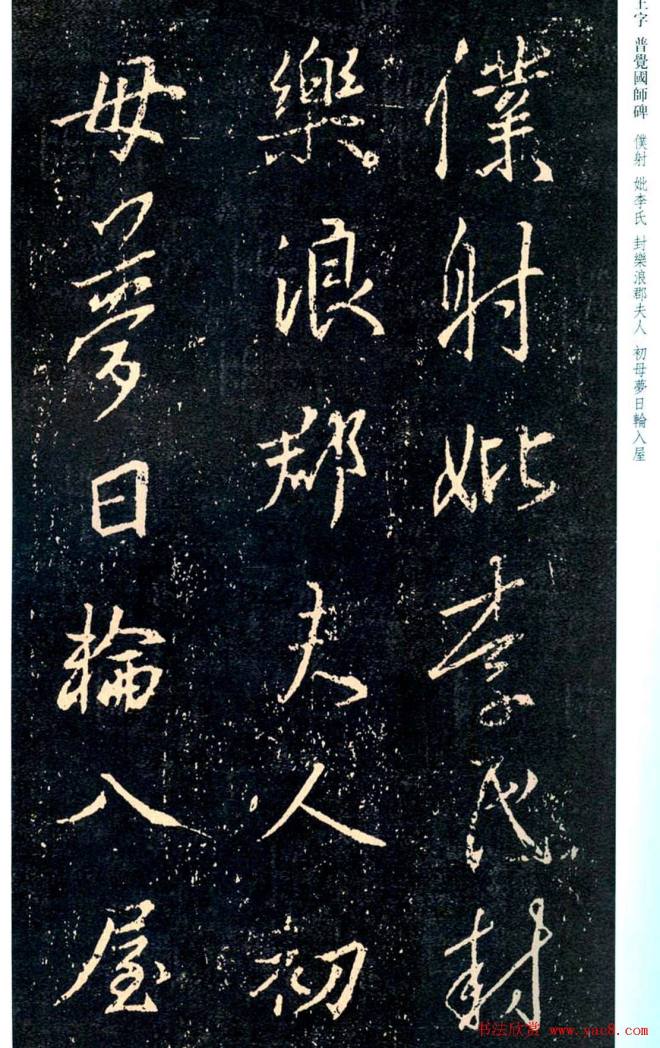 王字 普覺國師碑 僕射 妣李氏 封樂浪郡夫人 初母夢日輪入屋
僕射妣李氏封
樂浪郡夫人初
母夢日輪入屋
书法欣赏 www.yac8.com